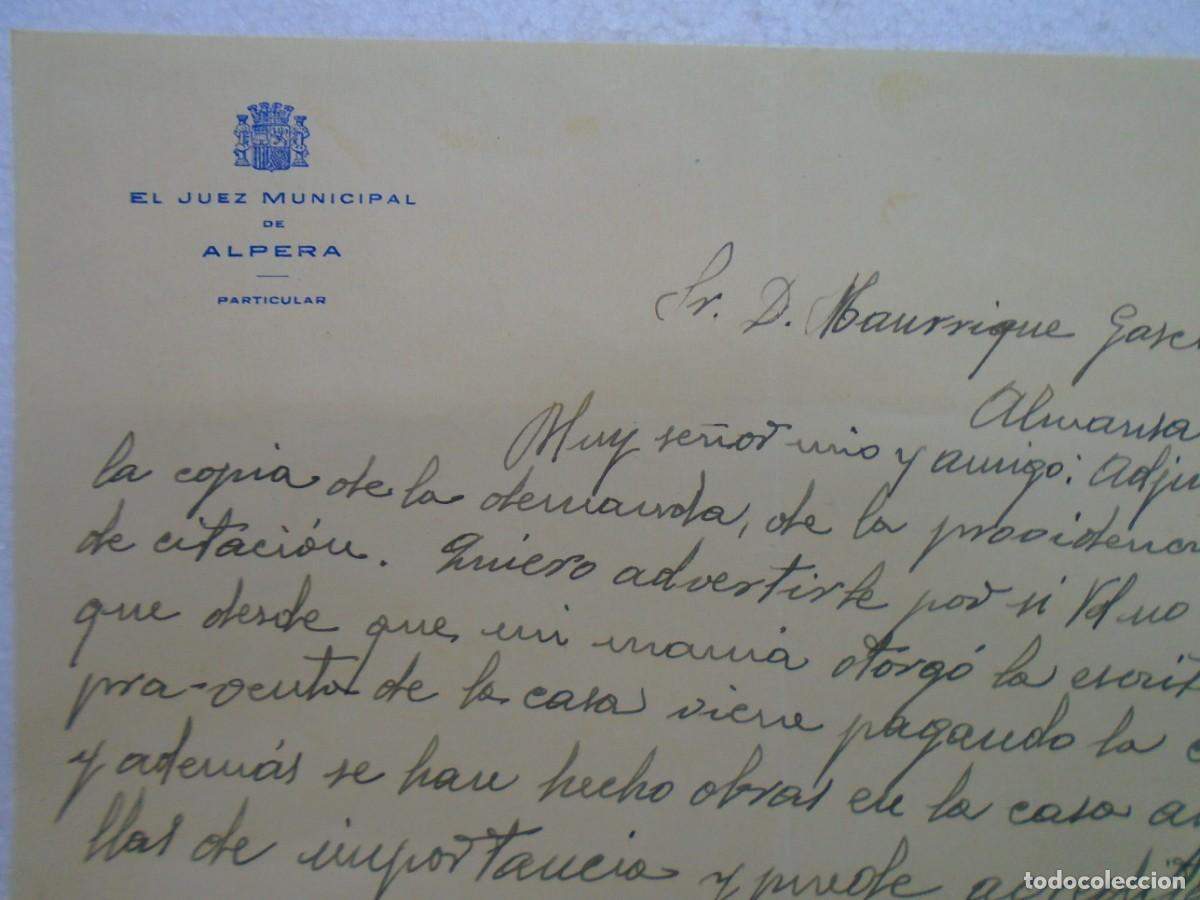 EL JUEZ MUNICIPAL
DE
ALPERA
PARTICULAR
Sr. D. Manrrique Gasc
Almansa
Muy señor mio y amigo: Adju
la copia de la demanda, de la providenc
de citación. Quiero advertirle por si Vd no
que desde que mi mamá otorgó la escrit
pra-venta de la casa viene pagando la c
y además se han hecho obras en la casa a
llas de importancia y puede
todocoleccion